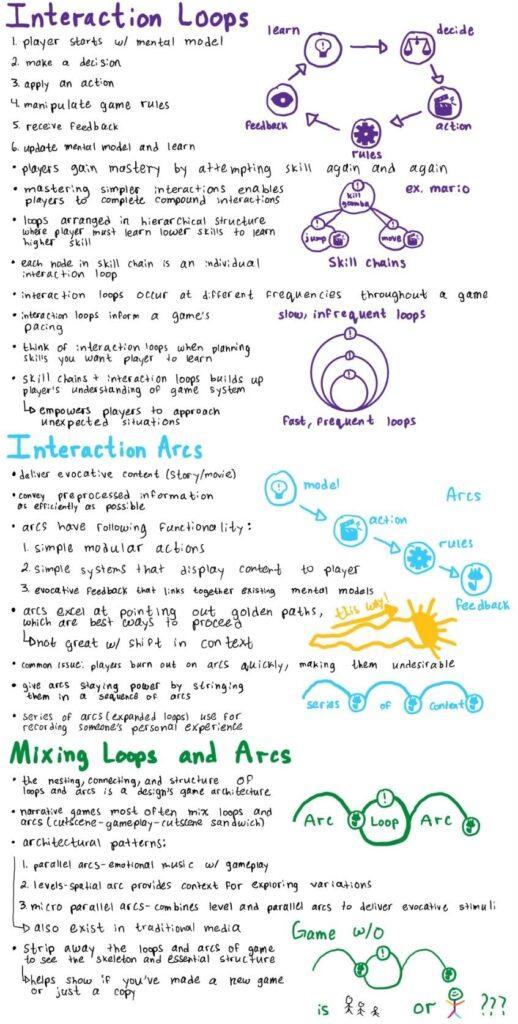 Interaction Loops
1. player starts w/ mental model
2. make a decision
3. apply an action
4. manipulate game rules
5. receive feedback
6. update mental model and learn
learn
decide
action
rules
feedback
• players gain mastery by attempting skill again and again
• mastering simpler interactions enables
players to complete compound interactions
• loops arranged in hierarchical structure
where player must learn lower skills to learn
higher skill
• each node in skill chain is an individual
interaction loop
ex. mario
kill
goomba
jump
move
Skill chains
• interaction loops occur at different frequencies throughout a game
• interaction loops inform a game's
pacing
• think of interaction loops when planning
skills you want player to learn
• skill chains + interaction loops builds up
player's understanding of game system
↳ empowers players to approach
unexpected situations
slow, infrequent loops
fast, frequent loops
Interaction Arcs
• deliver evocative content (story/movie)
• convey preprocessed information
as efficiently as possible
• arcs have following functionality:
1. simple modular actions
2. simple systems that display content to player
3. evocative feedback that links together existing mental models
Arcs
model
action
rules
feedback
• arcs excel at pointing out golden paths,
which are best ways to proceed
↳ not great w/ shift in context
this way!
• common issue: players burn out on arcs quickly, making them undesirable
• give arcs staying power by stringing
them in a sequence of arcs
• series of arcs (expanded loops) use for
recording someone's personal experience
series of content
Mixing Loops and Arcs
• the nesting, connecting, and structure of
loops and arcs is a design's game architecture
• narrative games most often mix loops and
arcs (cutscene-gameplay-cutscene sandwich)
Arc Loop Arc
• architectural patterns:
1. parallel arcs-emotional music w/ gameplay
2. levels-spatial arc provides context for exploring variations
3. micro parallel arcs- combines level and parallel arcs to deliver evocative stimuli
↳ also exist in traditional media
• strip away the loops and arcs of game
to see the skeleton and essential structure
↳ helps show if you've made a new game
or just a copy
Game w/o
is or ???